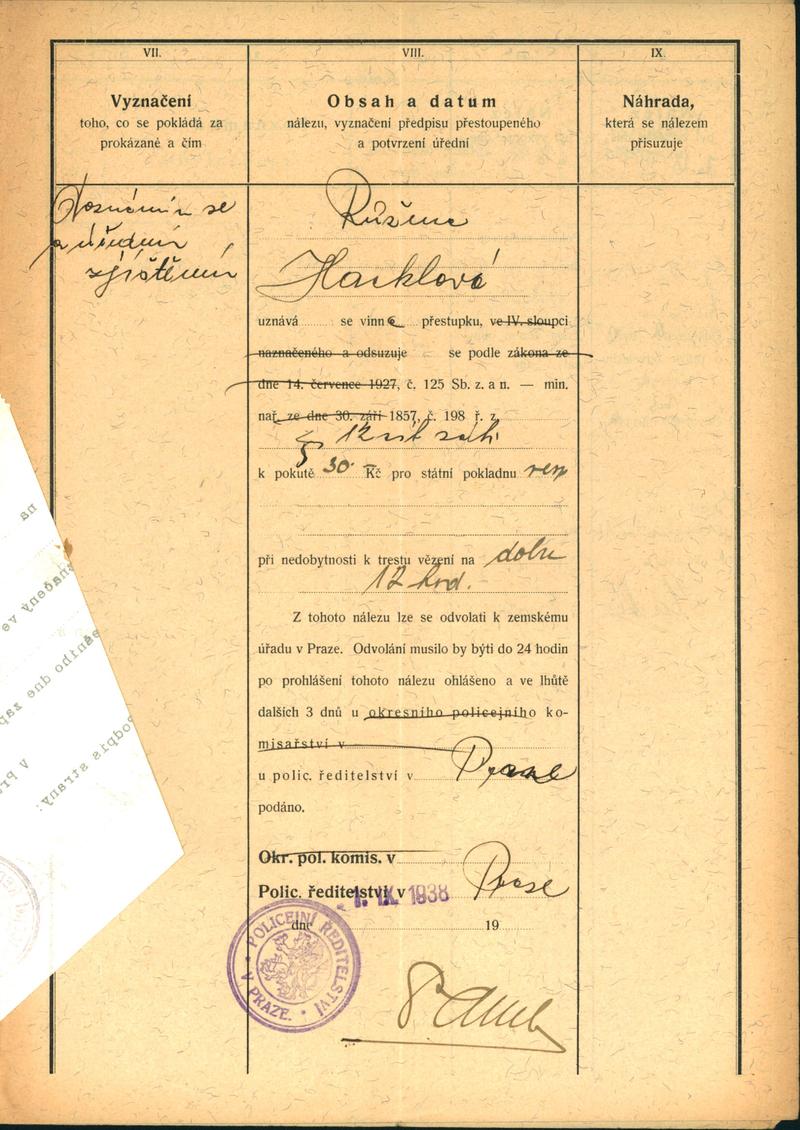 VII.
Vyznačení
toho, co se pokládá za
prokázané a čím
VIII.
Obsah a datum
nálezu, vyznačení předpisu přestoupeného
a potvrzení úřední
IX.
Náhrada,
která se nálezem
přisuzuje
se
a úřední
zjištění
Růžena
Hacklová
uznává se vinn vinou přestupku, ve IV. sloupci
naznačeného a odsuzuje se podle zákona ze
dne 14. července 1927, č. 125 Sb. z. a n. — min.
nař. ze dne 30. září 1857, č. 198 ř. z.
§ 12
k pokutě 30.- Kč pro státní pokladnu
při nedobytnosti k trestu vězení na dobu
12 hod.
Z tohoto nálezu lze se odvolati k zemskému
úřadu v Praze. Odvolání musilo by býti do 24 hodin
po prohlášení tohoto nálezu ohlášeno a ve lhůtě
dalších 3 dnů u okresního policejního ko-
misařství v
u polic. ředitelství v Praze
podáno.
Okr. pol. komis. v
Polic. ředitelství v Praze
- 1. IX. 1938
dne 19
POLICEJNÍ ŘEDITELSTVÍ
V PRAZE.
na
ve
dne
Podpis strany: